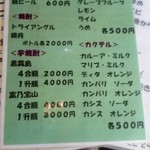 瓶ビール 600円
グレープフルーツ
レモン
ライム
うめ
各500円
<焼酎>
トライアングル
鏡月
ボトル各2000円
<芋焼酎>
黒霧島
4合瓶 2000円
1升瓶
富乃宝山
4合瓶
1升瓶 8000円
<カクテル>
カルーア・ミルク
マリブ・ミルク
ディタ オレンジ
カンパリ ソーダ
カンパリ オレンジ
カシス ソーダ
カシス オレンジ
各500円